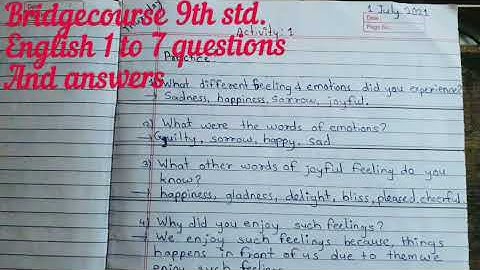 Bridgecourse 9th std.
English 1 to 7 questions
And answers
1 July 2021
Date
Page No.
Activity: 1
Practice
What different feeling & emotions did you experience?
Sadness, happiness, sorrow, joyful.
2) What were the words of emotions?
Guilty, sorrow, happy, sad
3) What other words of joyful feeling do you
know?
happiness, gladness, delight, bliss, pleaced, cheerful.
4) Why did you enjoy such feelings?
We enjoy such feelings because, things
happens in front of us due to them we
enjoy such feelings